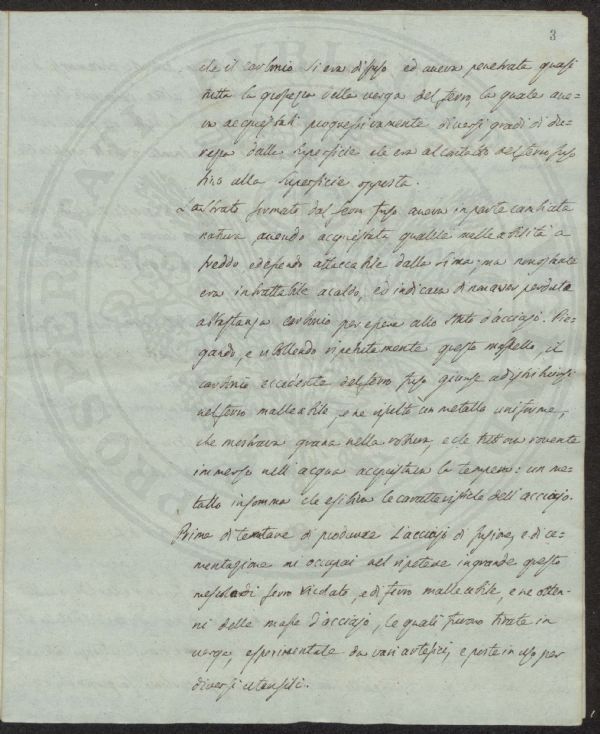 3
che il carbonio si era diffuso ed aveva penetrata quasi
tutta la grossezza della verga del ferro, la quale ave=
va acquistati progressivamente diversi gradi di du=
rezza dalla superficie che era al contatto del ferro fuso
fino alla superficie opposta.
Lo strato formato dal ferro fuso aveva in parte cambiata
natura avendo acquistata qualche malleabilità a
freddo ed essendo attaccabile dalla lima; ma nonostante
era intrattabile a caldo, ed indicava di non aver perduto
abbastanza carbonio per essere allo stato d'acciajo. Pie=
gando, e ribollendo ripetutamente questo masello, il
carbonio eccedente del ferro fuso giunse a distribuirsi
nel ferro malleabile, e ne risultò un metallo uniforme,
che mostrava grana nella rottura, e che
immerso nell' acqua acquistava la tempera: un me=
tallo insomma che esibiva le caratteristiche dell' acciajo.
Prima di tentare di produrre l'acciajo di fusione, e di ce=
mentazione mi occupai nel ripetere in grande questo
di ferro e di ferro malleabile, e ne otten=
ni delle masse d'acciajo, le quali furono tirate in
verga, esperimentate da vari artefici, e poste in uso per
diversi utensili.